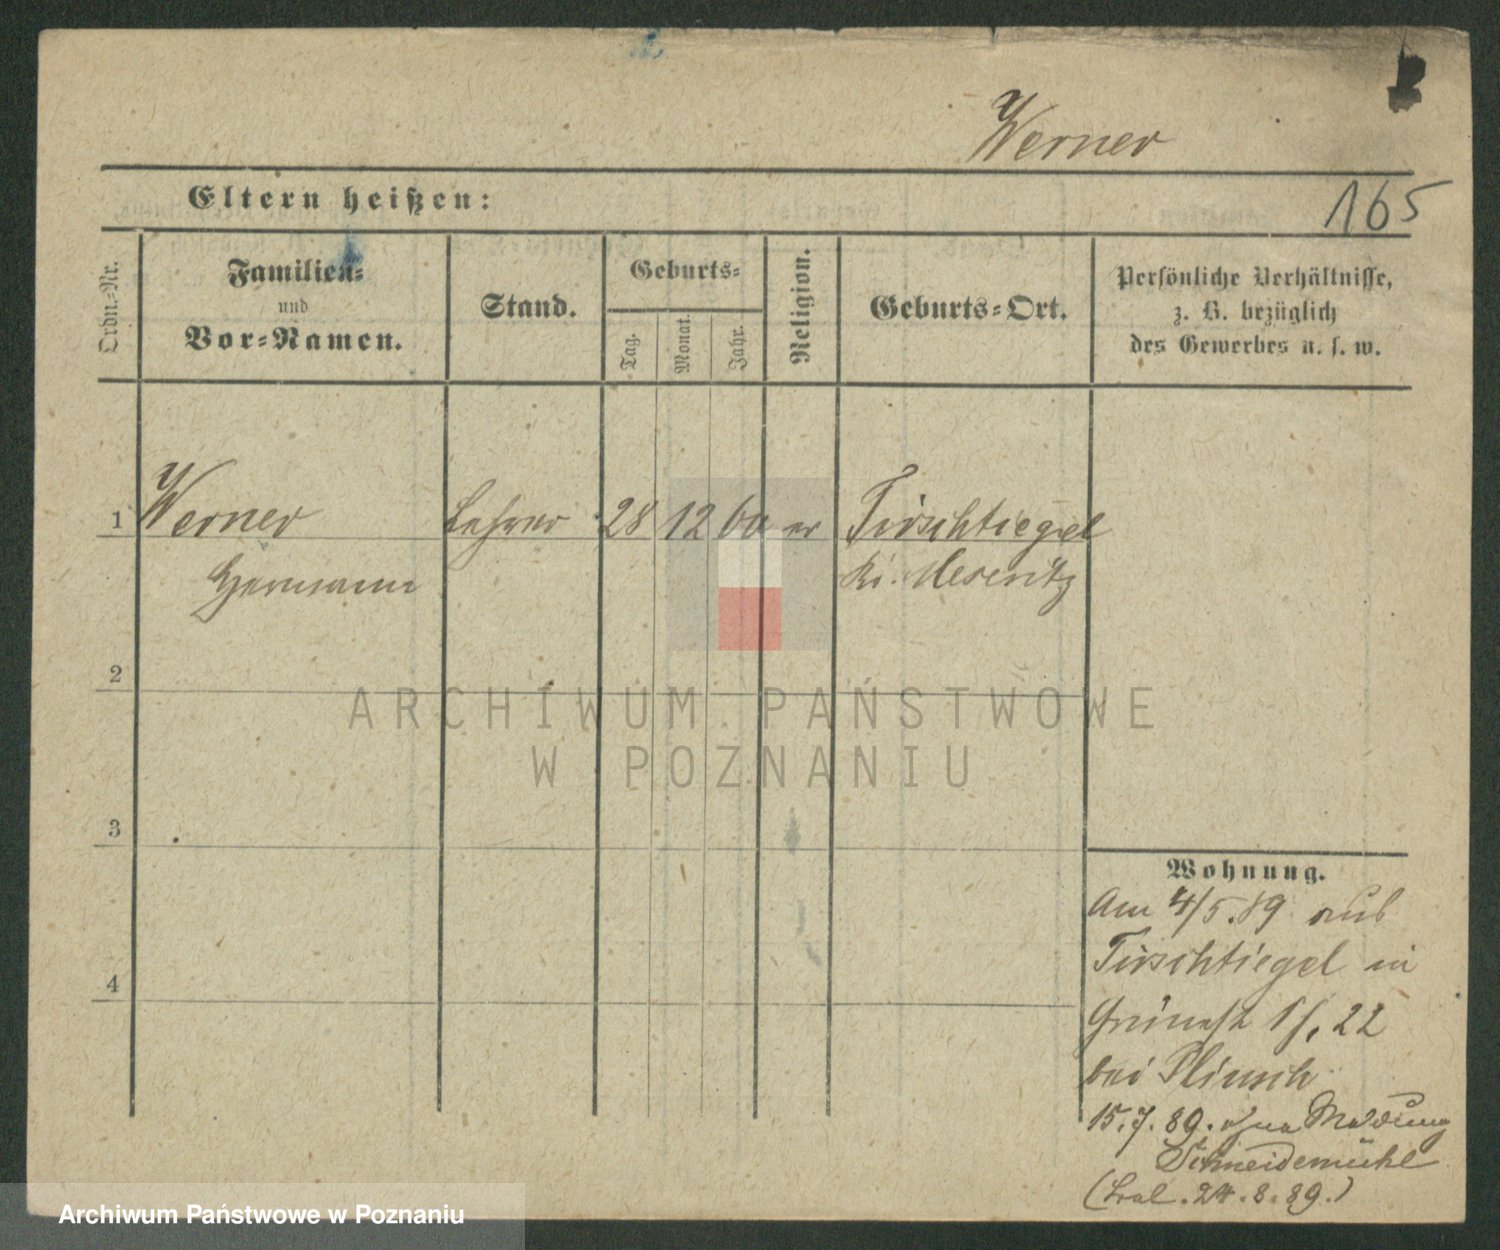 Werner
165
Eltern heißen:
Ordn.-Nr.
Familien-
und
Vor-Namen.
Stand.
Geburts-
Tag.
Monat.
Jahr.
Religion.
Geburts-Ort.
Persönliche Verhältnisse,
z. B. bezüglich
des Gewerbes u. s. w.
1 Werner Lehrer 28 12 60 Tirschtiegel
Hermann Kr. Meseritz
2
3
4
Wohnung.
Am 4/5.89 aus
Tirschtiegel in
22
bei
15.7.89. ohne Meldung
Schneidemühl
24.8.89.)
ARCHIWUM PAŃSTWOWE
W POZNANIU
Archiwum Państwowe w Poznaniu